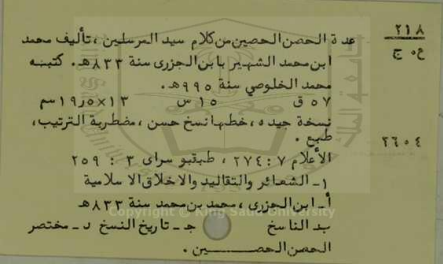 ٢١٨
ع٥ ج
عدة الحصن الحصين من كلام سيد المرسلين، تأليف محمد
ابن محمد الشهير بابن الجزرى سنة ٨٣٣هـ. كتبه
محمد الخلوصي سنة ٩٩٥هـ.
٥٧ ق ١٥ س ١٣×١٩٫٥ سم
نسخة جيدة، خطها نسخ حسن، مضطربة الترتيب،
طبع.
٢٦٠٤
الأعلام ٧: ٢٧٤، طبقبو سراى ٣: ٢٥٩
١ـ الشعائر والتقاليد والاخلاق الاسلامية
أـ ابن الجزرى، محمد بن محمد سنة ٨٣٣هـ
بـ الناسخ جـ ـ تاريخ النسخ د ـ مختصر
الحصن الحصين.
Copyright © King Saud University